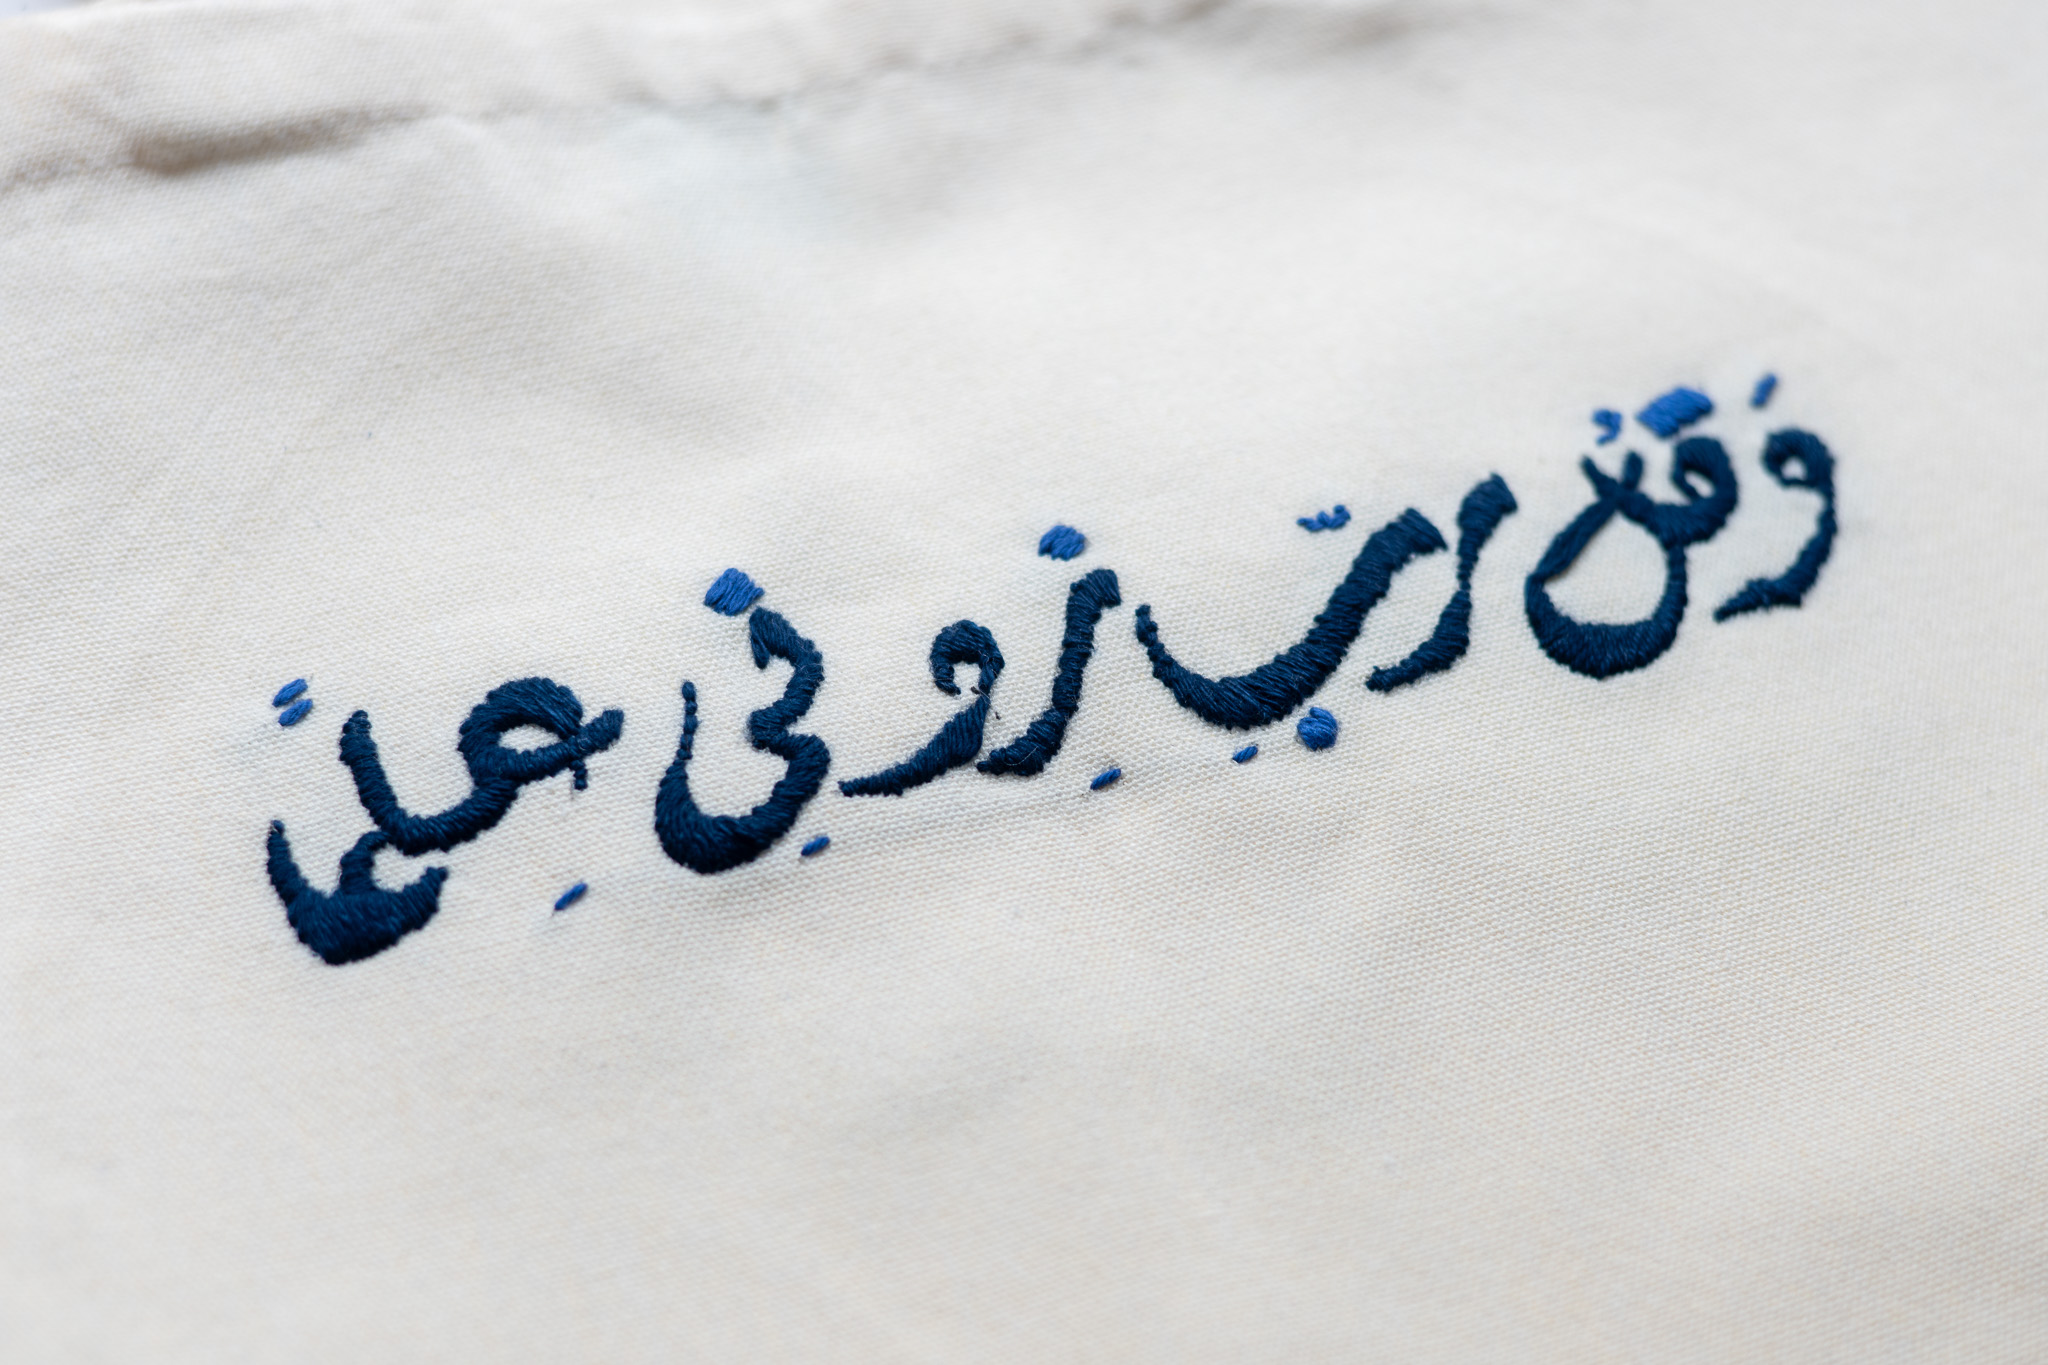 وَقُل ربِّ زِدنِي عِلماً